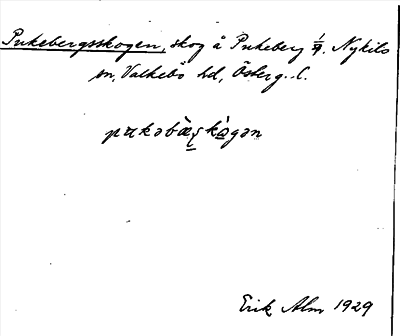 Pukebergsskogen, skog å Pukeberg 1/4. Nykils
sn, Valkebo hd, Österg. l.
pukəbæ̀ʂkògən
Erik Alm 1929